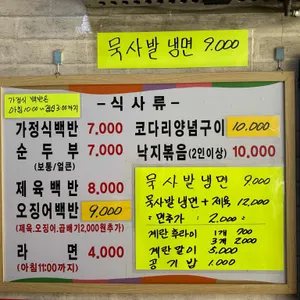 묵사발 냉면 9.000
가정식 백반은
- 식 사 류 -
가정식백반 7,000
순 두 부 7,000
(보통/얼큰)
제 육 백 반 8,000
오징어백반 9,000
(제육,오징어,곱빼기2,000원추가)
라 면 4,000
(아침11:00까지)
코다리양념구이 10,000
낙지볶음(2인이상) 10,000
묵사발냉면 9.000
묵사발냉면 + 제육 12,000
면추가 2.000
계란후라이 1개 700
3개 2,000
계란말이 5,000
공기밥 1.000